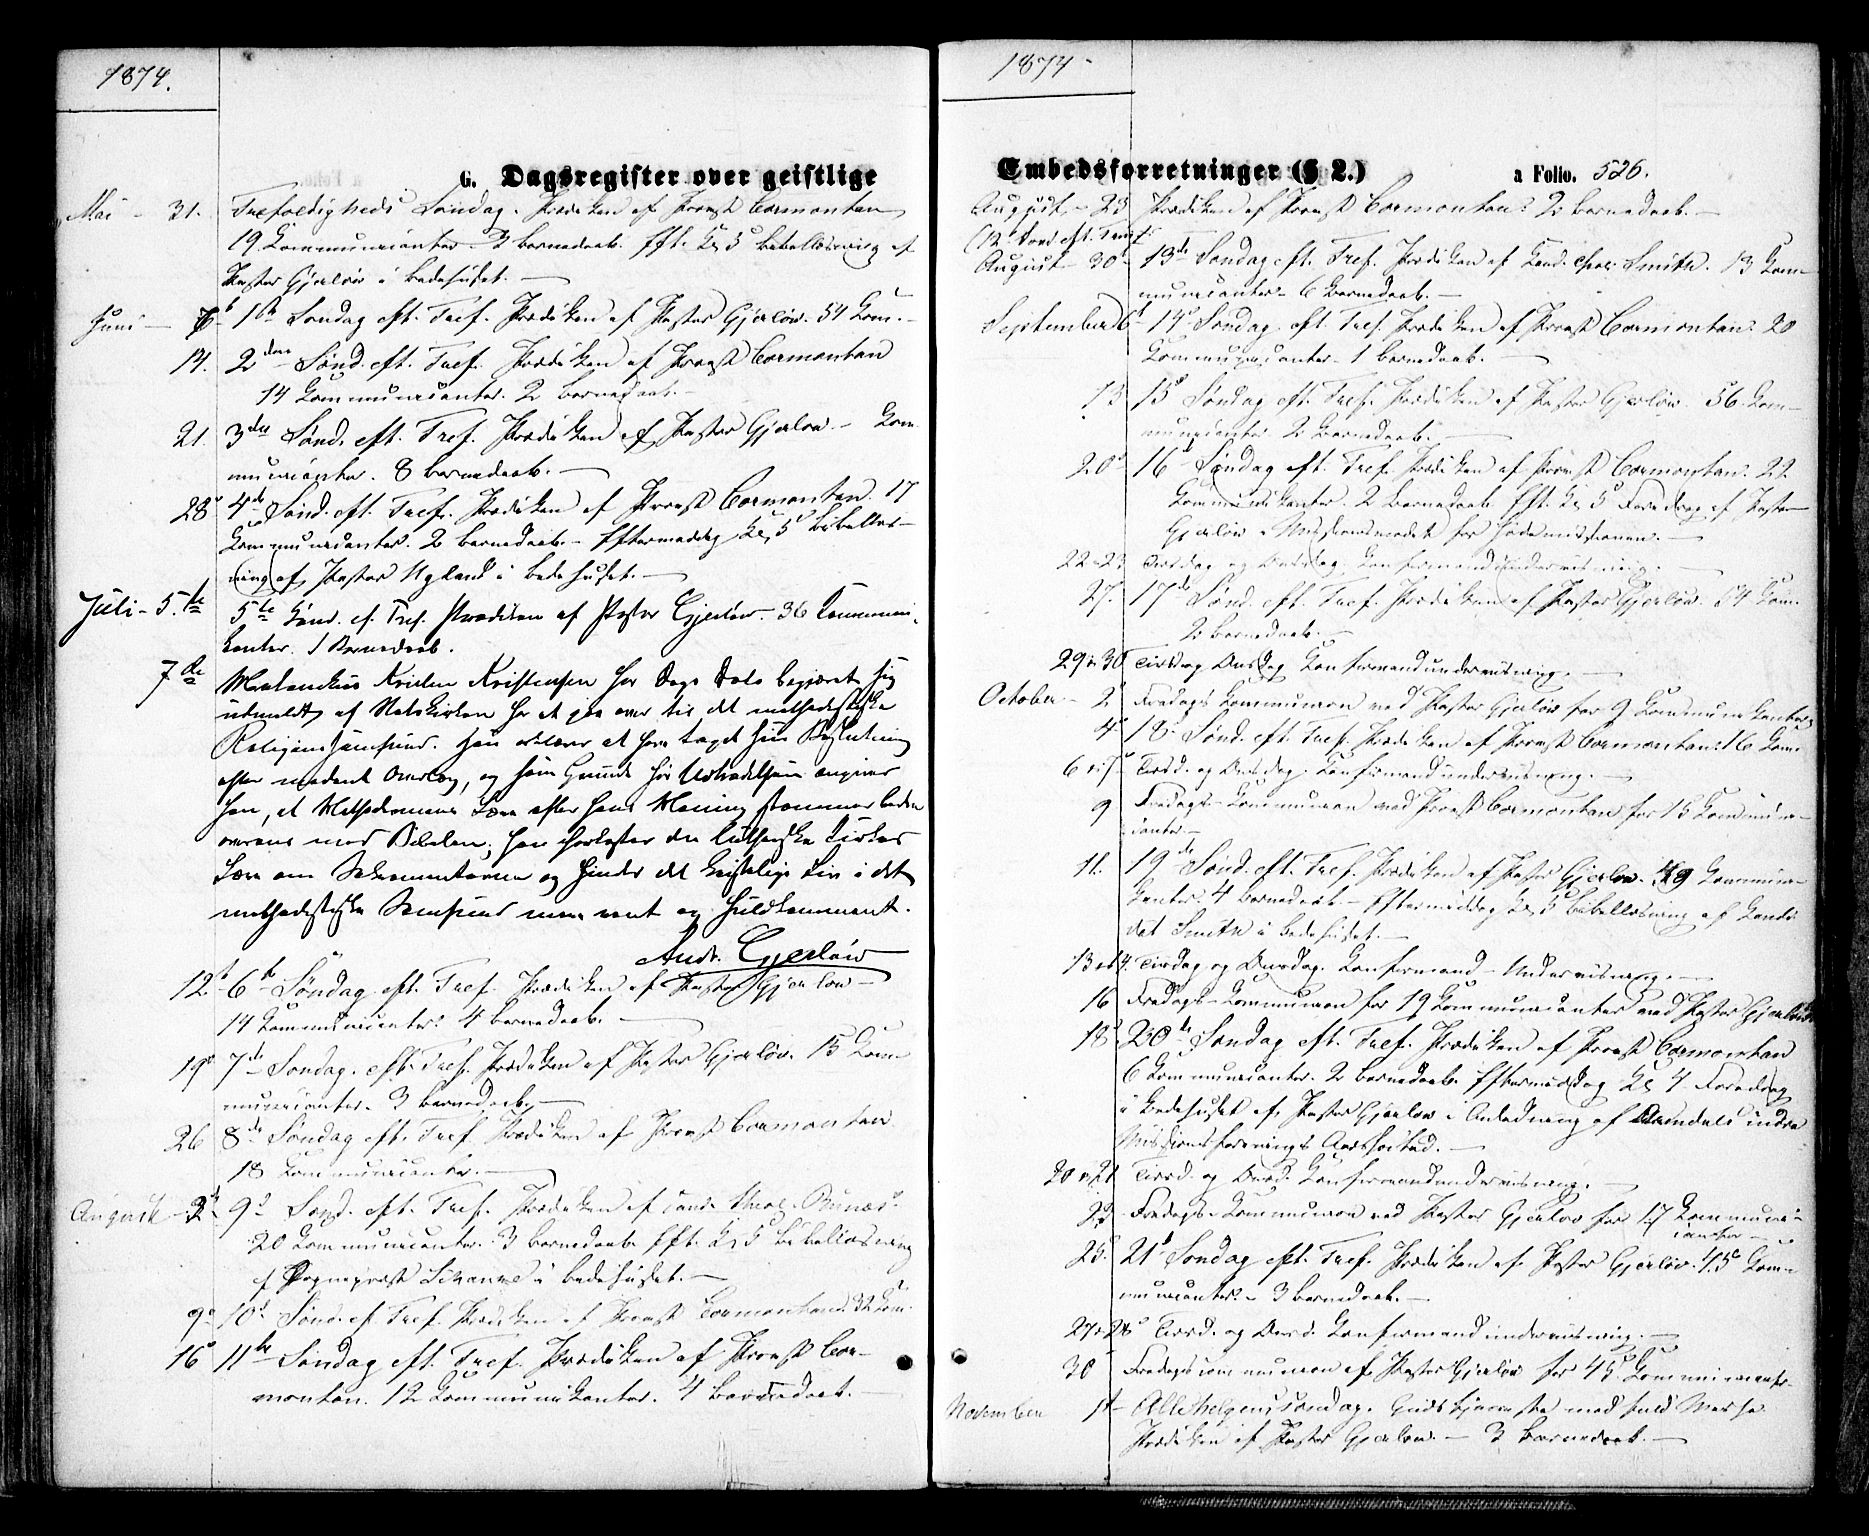 1874.
G. Dagsregister over geistlige
Mai - 31. Trefoldigheds Søndag. Prædiken af Provst Cormontan
19 Communicanter. 3 Barnedaab. Eft. Kl. 5 Bibellæsning af
Pastor Gjerløw i Bedehuset. —
Juni - 7 1ste Søndag eft. Tref. Prædiken af Pastor Gjerløw. 54 Com. —
14. 2den Sønd. eft. Tref. Prædiken af Provst Cormontan
14 Communicanter. 2 Barnedaab. —
21. 3die Sønd. eft. Tref. Prædiken af Pastor Gjerløw. — Kom
municanter. 8 Barnedaab. —
28 4de Sønd. eft. Tref. Prædiken af Provst Cormontan. 17
Communicanter. 2 Barnedaab. — Eftermiddag Kl. 5 Bibellæs-
ning af Pastor Nyland i Bedehuset. —
Juli - 5.te 5te Sønd. ef. Tref. Prædiken af Pastor Gjerløw. 36 Communi-
kanter. 1 Barnedaab.
7de Kristen Kristensen har Dags Dato begjæret sig
udmeldt af Statskirken for at gaa over til det methodistiske
Religionssamfund. Han erklærer at have taget sin Beslutning
efter modent Overlæg, og som Grund for Udtrædelsen angiver
han, at Methodismens Lære efter hans Mening stemmer bedre
overens med Bibelen; han forkaster den lutherske Kirkes
Lære om Sakramenterne og finder det kristelige Liv i det
methodistiske Samfund mere rent og fuldkomment.
Andr. Gjerløw
12 6te Søndag eft. Tref. Prædiken af Pastor Gjerløw —
14 Communicanter. 4 Barnedaab. —
19 7de Søndag. eft. Tref. Prædiken af Pastor Gjerløw. 15 Com-
municanter. 3 Barnedaab. —
26 8de Søndag eft. Tref. Prædiken af Provst Cormontan
18 Communicanter. —
August - 2 9de Sønd. eft. Tref. Prædiken af Cand.
20 Communicanter. 3 Barnedaab. Eft. Kl. 5 Bibellæsning
af Sogneprest Schanke i Bedehuset. —
9 10de Sønd. ef. Tref. Prædiken af Provst Cormontan. 32 Com.
16 11te Søndag eft. Tref. Prædiken af Provst Cor-
montan. 12 Communikanter. 4 Barnedaab. —
1874
Embedsforretninger (§ 2.) a Folio. 526.
August - 23 Prædiken af Provst Cormontan. 2 Barnedaab. —
(12 Sønd. eft. Tref.
August - 30 13de Søndag eft. Tref. Prædiken af Cand. theol. Smith. 13 Com-
municanter. 6 Barnedaab. —
September 6 14de Søndag eft. Tref. Prædiken af Provst Cormontan. 20
Communicanter. 1 Barnedaab. —
13 15de Søndag eft. Tref. Prædiken af Pastor Gjerløw. 56 Com-
municanter 2 Barnedaab. —
20 16de Søndag eft. Tref. Prædiken af Provst Cormontan. 22
Communikanter. 2 Barnedaab. Eft. Kl. 5 Foredrag af Pastor
Gjerløw i Missionsmødet for Jødemissionen. —
22-23 Tirsdag og Onsdag. Konfirmandundervisning. —
27 17de Sønd. eft. Tref. Prædiken af Pastor Gjerløw. 54 Com.
2 Barnedaab. —
29 & 30 Tirsdag Onsdag Konfirmandundervisning. —
October - 2 Fredags Communion ved Pastor Gjerløw for 9 Communikanter
4 18. Sønd. eft. Tref. Prædiken af Provst Cormontan. 16 Com.
6 & 7 Tirsd. og Onsdag. Konfirmandundervisning. —
9 Fredags-Communion ved Provst Cormontan for 15 Communi-
canter. —
11. 19de Sønd. eft. Tref. Prædiken af Pastor Gjerløw. 49 Communi-
kanter. 4 Barnedaab — Eftermiddag Kl. 5 Bibellæsning af Kandi-
dat Smith i Bedehuset. —
13 & 14. Tirsdag og Onsdag. Konfirmand-Undervisning. —
16 Fredags-Communion for 19 Communicanter ved Pastor Gjerløw
18 20de Søndag eft. Tref. Prædiken af Provst Cormontan
6 Communicanter. 2 Barnedaab. Eftermiddag Kl. 4 Foredrag
i Bedehuset af Pastor Gjerløw i Anledning af Arendals indre
Missionsforenings Aarshøitid. —
20 & 21 Tirsd. og Onsd. Konfirmandundervisning. —
23 Fredags-Communion ved Pastor Gjerløw for 17 Communi-
canter —
25 21de Søndag eft. Tref. Prædiken af Pastor Gjerløw. 45 Com-
municanter. — 3 Barnedaab. —
27 & 28 Tirsd. og Onsd. Konfirmandundervisning. —
30 Fredagscommunion af Pastor Gjerløw for 45 Communicantr.
November 1st Allehelgenssøndag. Gudstjeneste med fuld Messe
Prædiken af Pastor Gjerløw. — 3 Barnedaab. —